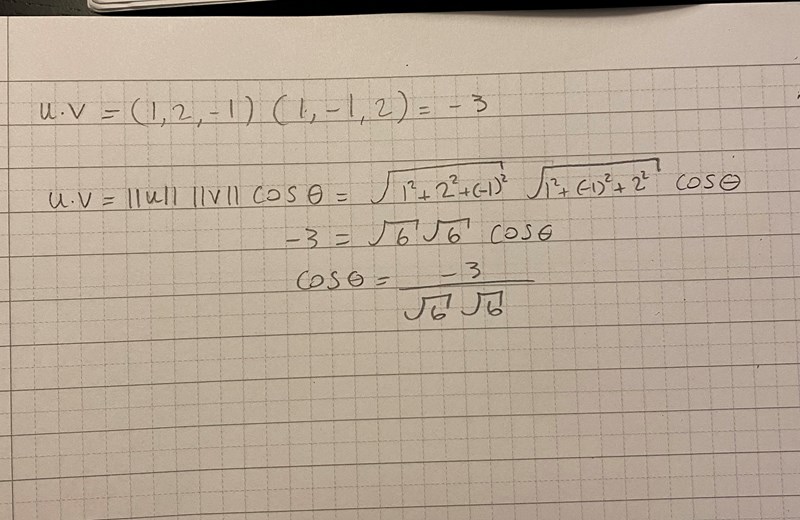 u.v = (1, 2, -1) (1, -1, 2) = -3
u.v = ||u|| ||v|| cos θ = √(1²+2²+(-1)²) √(1²+(-1)²+2²) cos θ
-3 = √6 √6 cos θ
cos θ = -3 / √6 √6